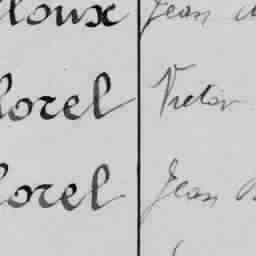 loux Jean
orel Victor
orel Jean